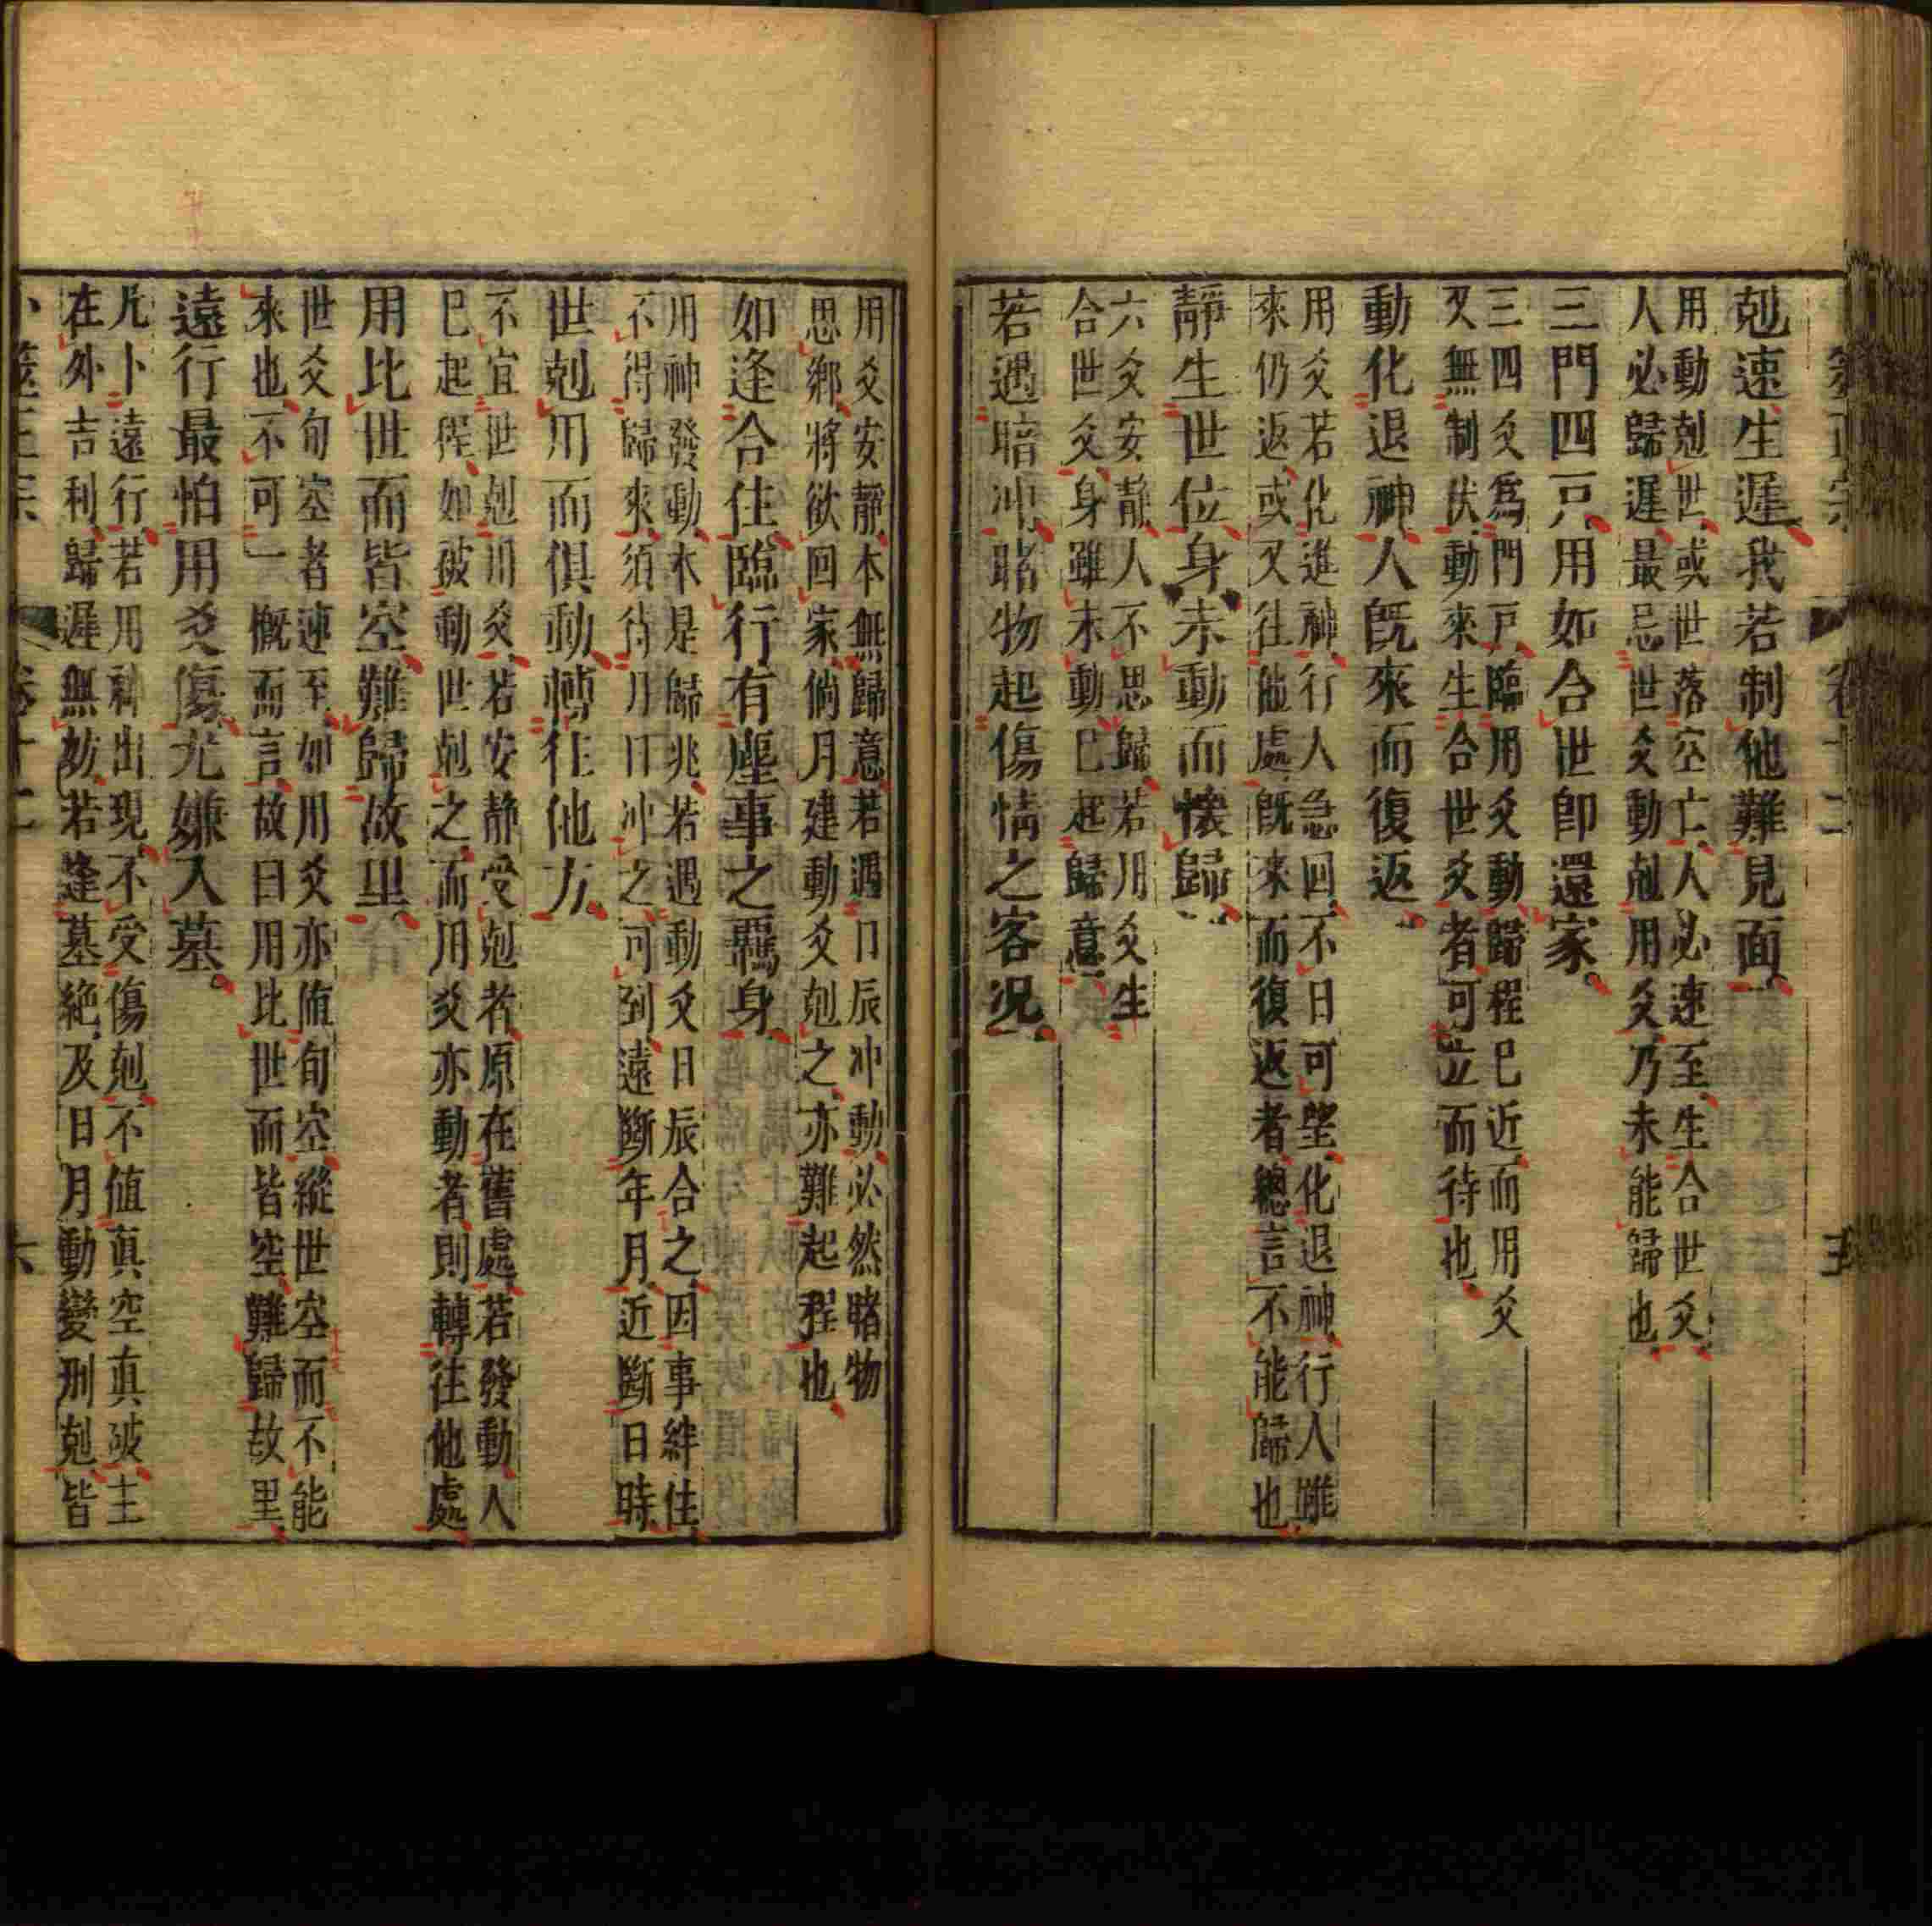 剋速生遲我若制他難見面
用動剋世或世落空亡人必速至生合世爻
人必歸遲最忌世爻動剋用爻乃未能歸也
三門四戶用如合世卽還家
三四爻爲門戶臨用爻動歸程已近而用爻
又無制伏動來生合世爻者可立而待也
動化退神人旣來而復返
用爻若化進神行人急回不日可望化退神行人雖
來仍返或又往他處旣來而復返者總言不能歸也
靜生世位身未動而懷歸
六爻安靜人不思歸若用爻生
合世爻身雖未動已起歸意
若遇暗冲睹物起傷情之客况
用爻安靜本無歸意若遇日辰冲動必然睹物
思鄉將欲回家倘月建動爻剋之亦難起程也
如逢合住臨行有塵事之羈身
用神發動本是歸兆若遇動爻日辰合之因事絆住
不得歸來須待月日冲之可到遠斷年月近斷日時
世剋用而俱動轉往他方
不宜世剋用爻若安静受剋者原在舊處若發動人
已起程如破動世剋之而用爻亦動者則轉往他處
用比世而皆空難歸故里
世爻旬空者速至如用爻亦值旬空縱世空而不能
來也不可一概而言故曰用比世而皆空難歸故里
遠行最怕用爻傷尤嫌入墓
凡卜遠行若用神出現不受傷剋不值眞空眞破主
在外吉利歸遲無妨若逢墓絶及日月動變刑剋皆
卜筮正宗 卷十二 六